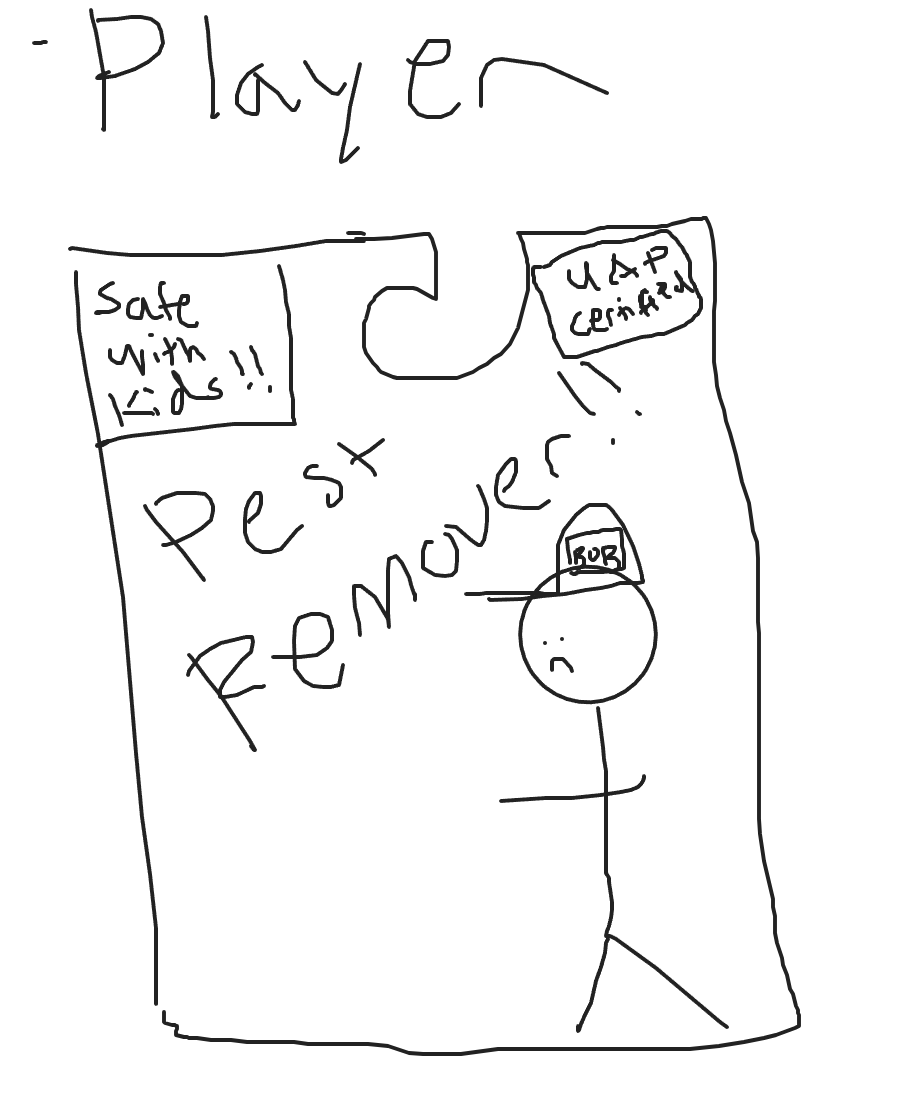 - Player
Safe
with
Kids!!
UAP
certified
Pest
Remover!!
BOB